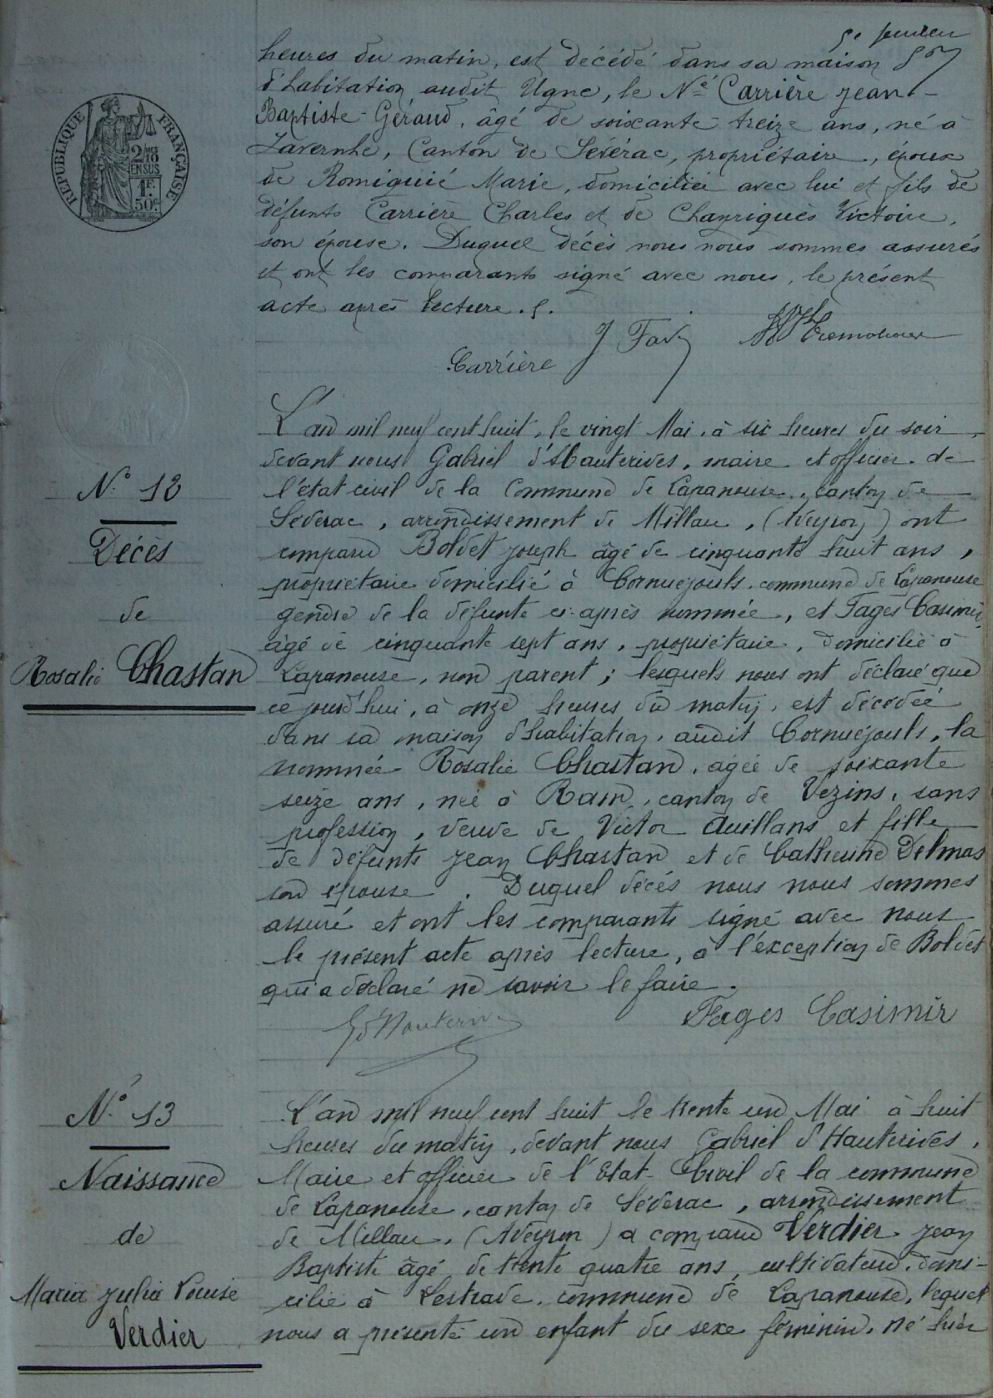 heures du matin, est décédé dans sa maison
d'habitation audit Ugne, le Né Carrière Jean-
Baptiste-Géraud, âgé de soixante-treize ans, né à
Lavernhe, Canton de Sévérac, propriétaire, époux
de Romiguié Marie, domiciliée avec lui et fils de
défunts Carrière Charles et de Chanrigues Victoire,
son épouse. Duquel décès nous nous sommes assurés
et ont les comparants signé avec nous, le présent
acte après lecture.
Carrière
REPUBLIQUE FRANÇAISE
1F
50c
N° 12
Décès
de
Rosalie Chastan
L'an mil neuf cent huit, le vingt Mai, à six heures du soir
devant nous Gabriel d'Hauterives, maire et officier de
l'état-civil de la Commune de Lapanouse, canton de
Séverac, arrondissement de Millau, (Aveyron) ont
comparu Boldet Joseph âgé de cinquante huit ans,
propriétaire domicilié à Cornuéjouls, commune de Lapanouse
gendre de la défunte ci-après nommée, et Fages Casimir
âgé de cinquante sept ans, propriétaire, domicilié à
Lapanouse, non parent; lesquels nous ont déclaré que
ce jourd'hui, à onze heures du matin, est décédée
dans sa maison d'habitation, audit Cornuéjouls, la
nommée Rosalie Chastan, agée de soixante
seize ans, née à Ram, canton de Vézins, sans
profession, veuve de Victor Auillans et fille
de défunts Jean Chastan et de Catherine Delmas
son épouse. Duquel décés nous nous sommes
assuré et ont les comparants signé avec nous
le présent acte après lecture, à l'exception de Boldet
qui a déclaré ne savoir le faire.
Fages Casimir
N° 13
Naissance
de
Maria Julia Louise
Verdier
L'an mil neuf cent huit le trente un Mai à huit
heures du matin, devant nous Gabriel d'Hauterives,
Maire et officier de l'Etat-Civil de la commune
de Lapanouse, canton de Séverac, arrondissement
de Millau, (Aveyron) a comparu Verdier Jean
Baptiste âgé de trente quatre ans, cultivateur, domi-
cilié à Lestrade, commune de Lapanouse, lequel
nous a présenté un enfant du sexe féminin, né hier